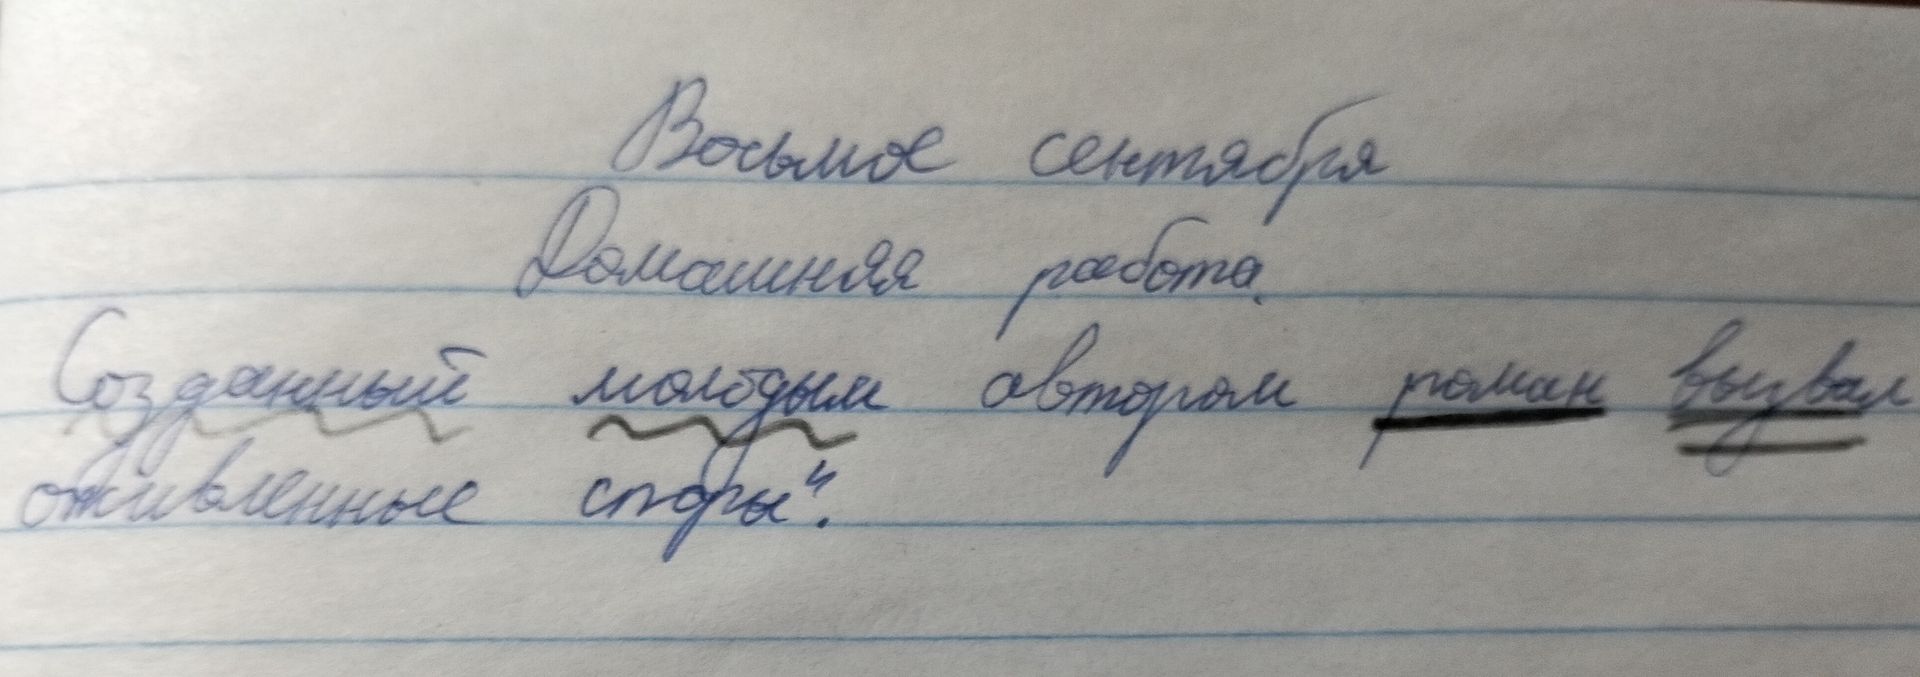 Восьмое сентября
Домашняя работа.
Созданный молодым автором роман вызвал
оживленные споры".